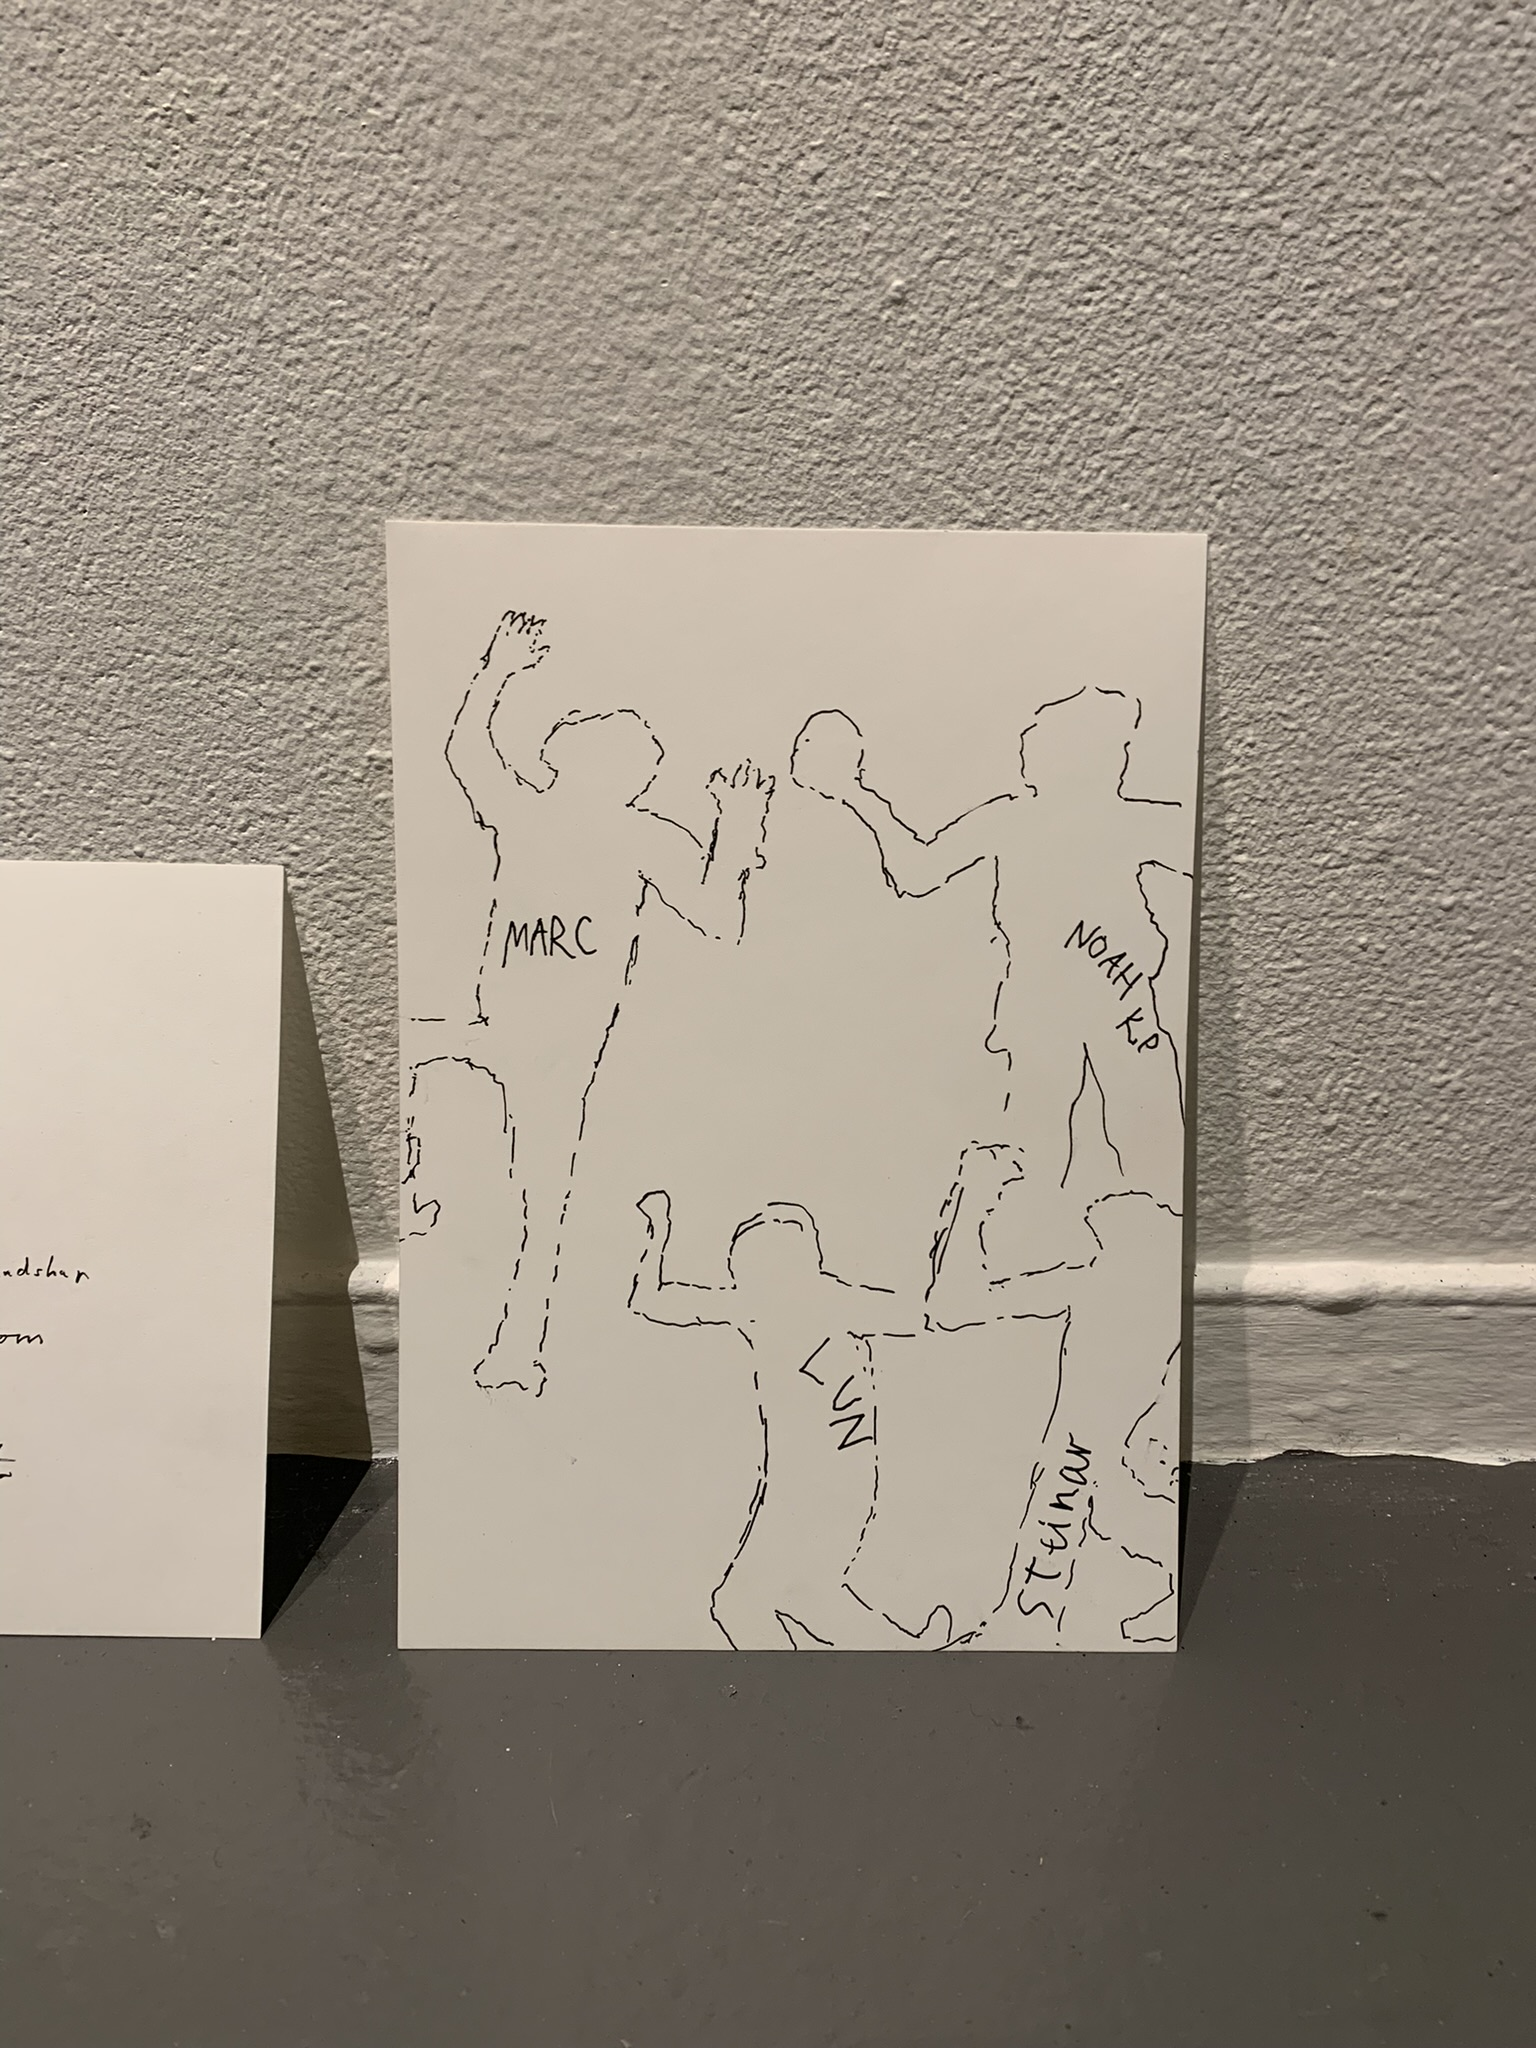 MARC
NOAH KP
LUN
Steinar
om